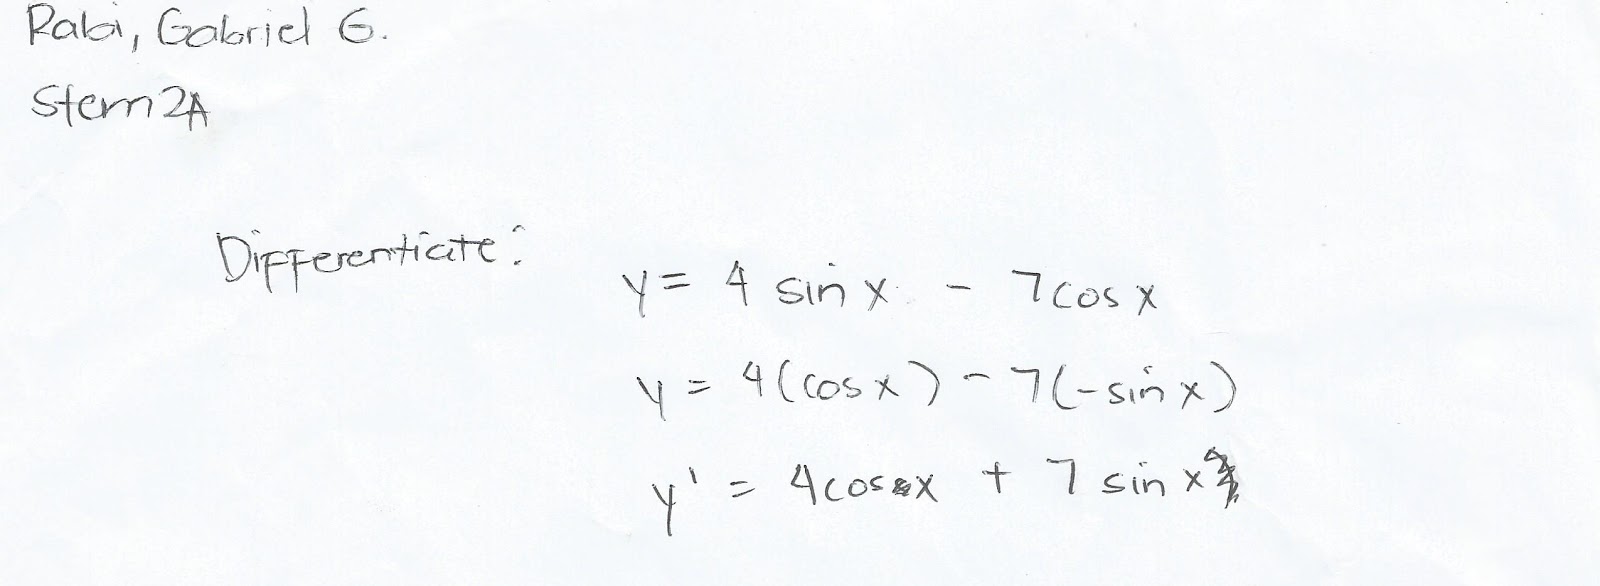 Rabi, Gabriel G.
Stem 2A
Differentiate:
y = 4 sin x - 7 cos x
y = 4(cos x) - 7(-sin x)
y' = 4 cos x + 7 sin x